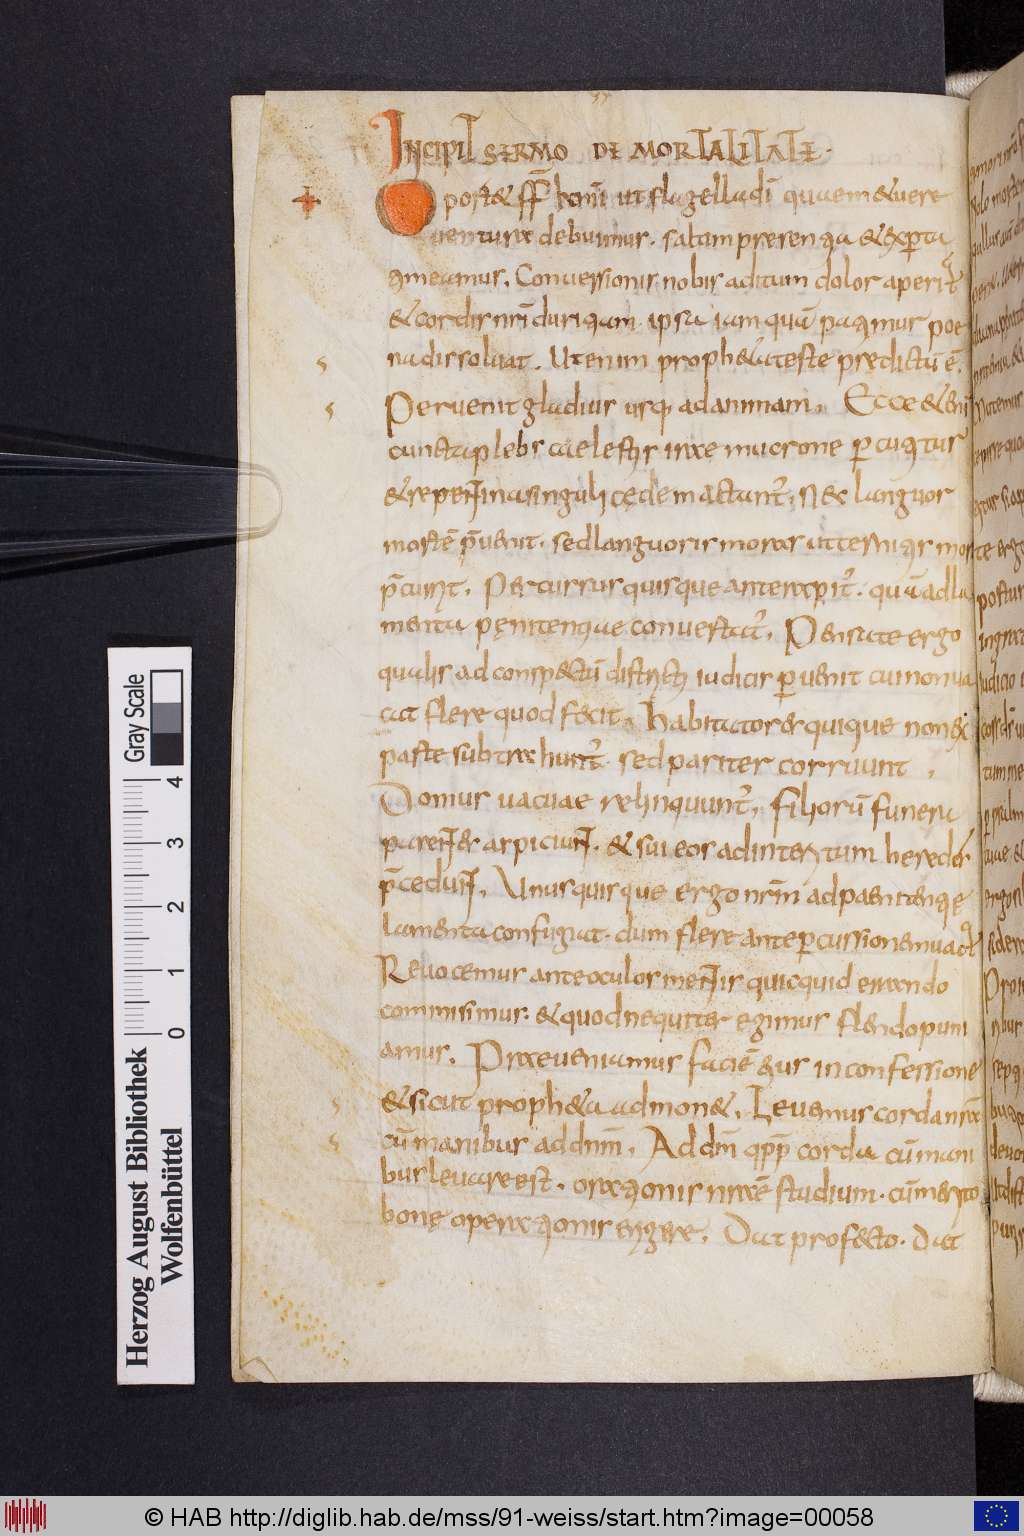 INCIPIT SERMO DE MORTALITATE.
Oportet ff̄ kr̄mi ut flagella dī quae metuere
ventura debuimus. saltim presentia et experta
timeamus. Conversionis nobis aditum dolor aperiat
et cordis nr̄i duritiam ipsa iam quā patimur poe
na dissolvat. Ut enim propheta teste predictū ē.
Pervenit gladius usq; ad animam. Ecce etenī
cuncta plebs caelestis irae mucrone percutitur
et repentina singuli cęde mactant~. Nec languor
mortē p̄venit. sed languoris moras ut cernitis mors
p̄currit. Percussus quisque ante rapit~. quā ad la
menta pęnitentiae convertat~. Pensate ergo
qualis ad conspectū districti iudicis pervenit cui non va
cat flere quod fecit. habitatores quique non ex
parte subtrahunt~. sed pariter corruunt.
Domus vacuae relinquunt~. filiorū funera
parentes aspiciunt. et sui eos ad interitum heredes
p̄cedunt. Unusquisque ergo nr̄m ad paenitentię
lamenta confugiat. dum flere ante percussionem vacat
Revocemus ante oculos mentis quicquid errando
commisimus. et quod nequiter egimus flendo puni
amus. Praeveniamus faciē eius in confessione
et sicut propheta admonet. Levemus corda nr̄a
cū manibus ad dn̄m. Ad dm̄ qpp̄ corda cū mani
bus levare est. orationis nr̄ae studium. cū merito
bonę operationis erigere. Dat profecto. dat
Herzog August Bibliothek
Wolfenbüttel
0 1 2 3 4
Gray Scale
© HAB http://diglib.hab.de/mss/91-weiss/start.htm?image=00058